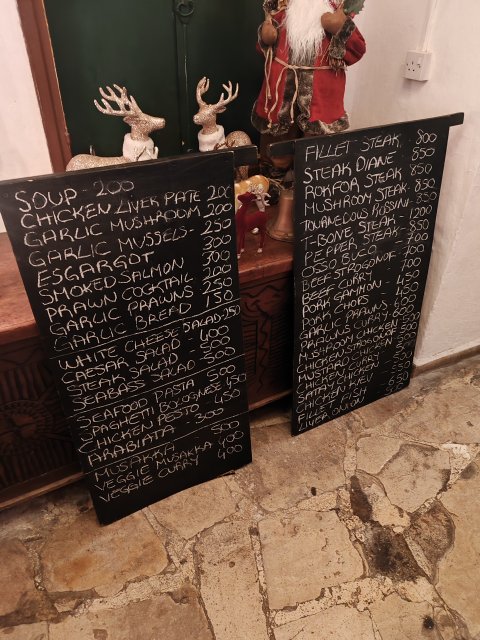 SOUP - 200
CHICKEN LIVER PATE 200
GARLIC MUSHROOM 200
GARLIC MUSSELS - 250
ESGARGOT 300
SMOKED SALMON 300
PRAWN COCKTAIL 200
GARLIC PRAWNS 250
GARLIC BREAD 150
WHITE CHEESE SALAD - 250
CAESAR SALAD - 400
STEAK SALAD - 500
SEABASS SALAD - 500
SEAFOOD PASTA 500
SPAGHETTI BOLOGNESE 450
CHICKEN PESTO - 450
ARABIATA - 300
MUSAKKA 500
VEGGIE MUSAKKA 400
VEGGIE CURRY 400
FILLET STEAK - 800
STEAK DIANE 850
ROKFOR STEAK 850
MUSHROOM STEAK - 850
TOURNEDOS ROSSINI
T-BONE STEAK - 1200
PEPPER STEAK - 850
OSSO BUCO - 700
BEEF STROGONOF 700
BEEF CURRY
PORK GAMMON
PORK CHOPS
GARLIC PRAWNS
PRAWNS CURRY
MUSHROOM CHICKEN
CHICKEN
MUSTARD CHICKEN
CHICKEN CURRY
SATAY CHICKEN
CHICKEN KIEV
FILLET FISH
LIVER ONION